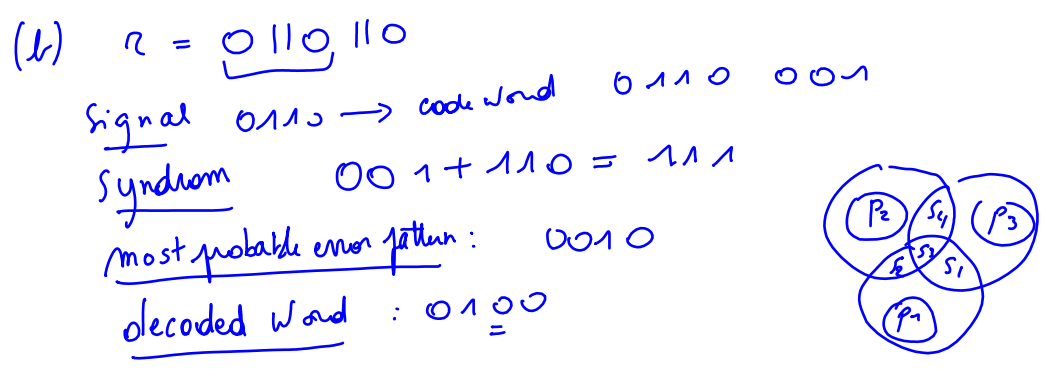 (b) r = 0110 110
Signal 0110 → codeword 0110 001
Syndrom 001 + 110 = 111
most probable error pattern : 0010
decoded word : 0100
P2 S4 P3
S2 S3 S1
P1